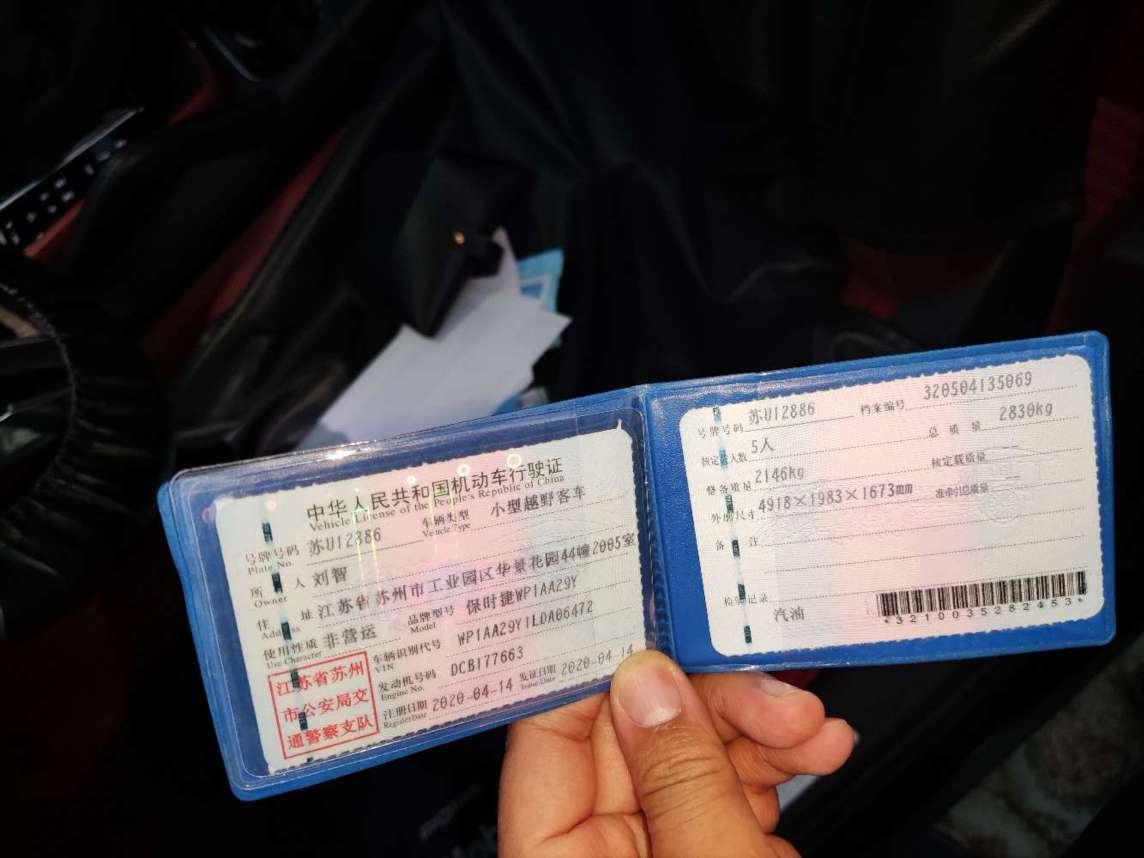 中华人民共和国机动车行驶证
Vehicle License of the People's Republic of China
号牌号码 苏U12886 车辆类型 小型越野客车
Plate No. Vehicle Type
所 人 刘智
Owner
住 址 江苏省苏州市工业园区华景花园44幢2005室
Address
使用性质 非营运 品牌型号 保时捷WP1AA29Y
Use Character Model
车辆识别代号 WP1AA29Y1LDA06472
VIN
发动机号码 DCB177663
Engine No.
注册日期 2020-04-14 发证日期 2020-04-14
Register Date Issue Date
江苏省苏州
市公安局交
通警察支队
号牌号码 苏U12886 档案编号 320504135069
核定 人数 5人 总 质 量 2830kg
整备质量 2146kg 核定载质量 --
外廓尺寸 4918×1983×1673 准牵引总质量 --
备 注
检验记录
汽油
*3210035282453*